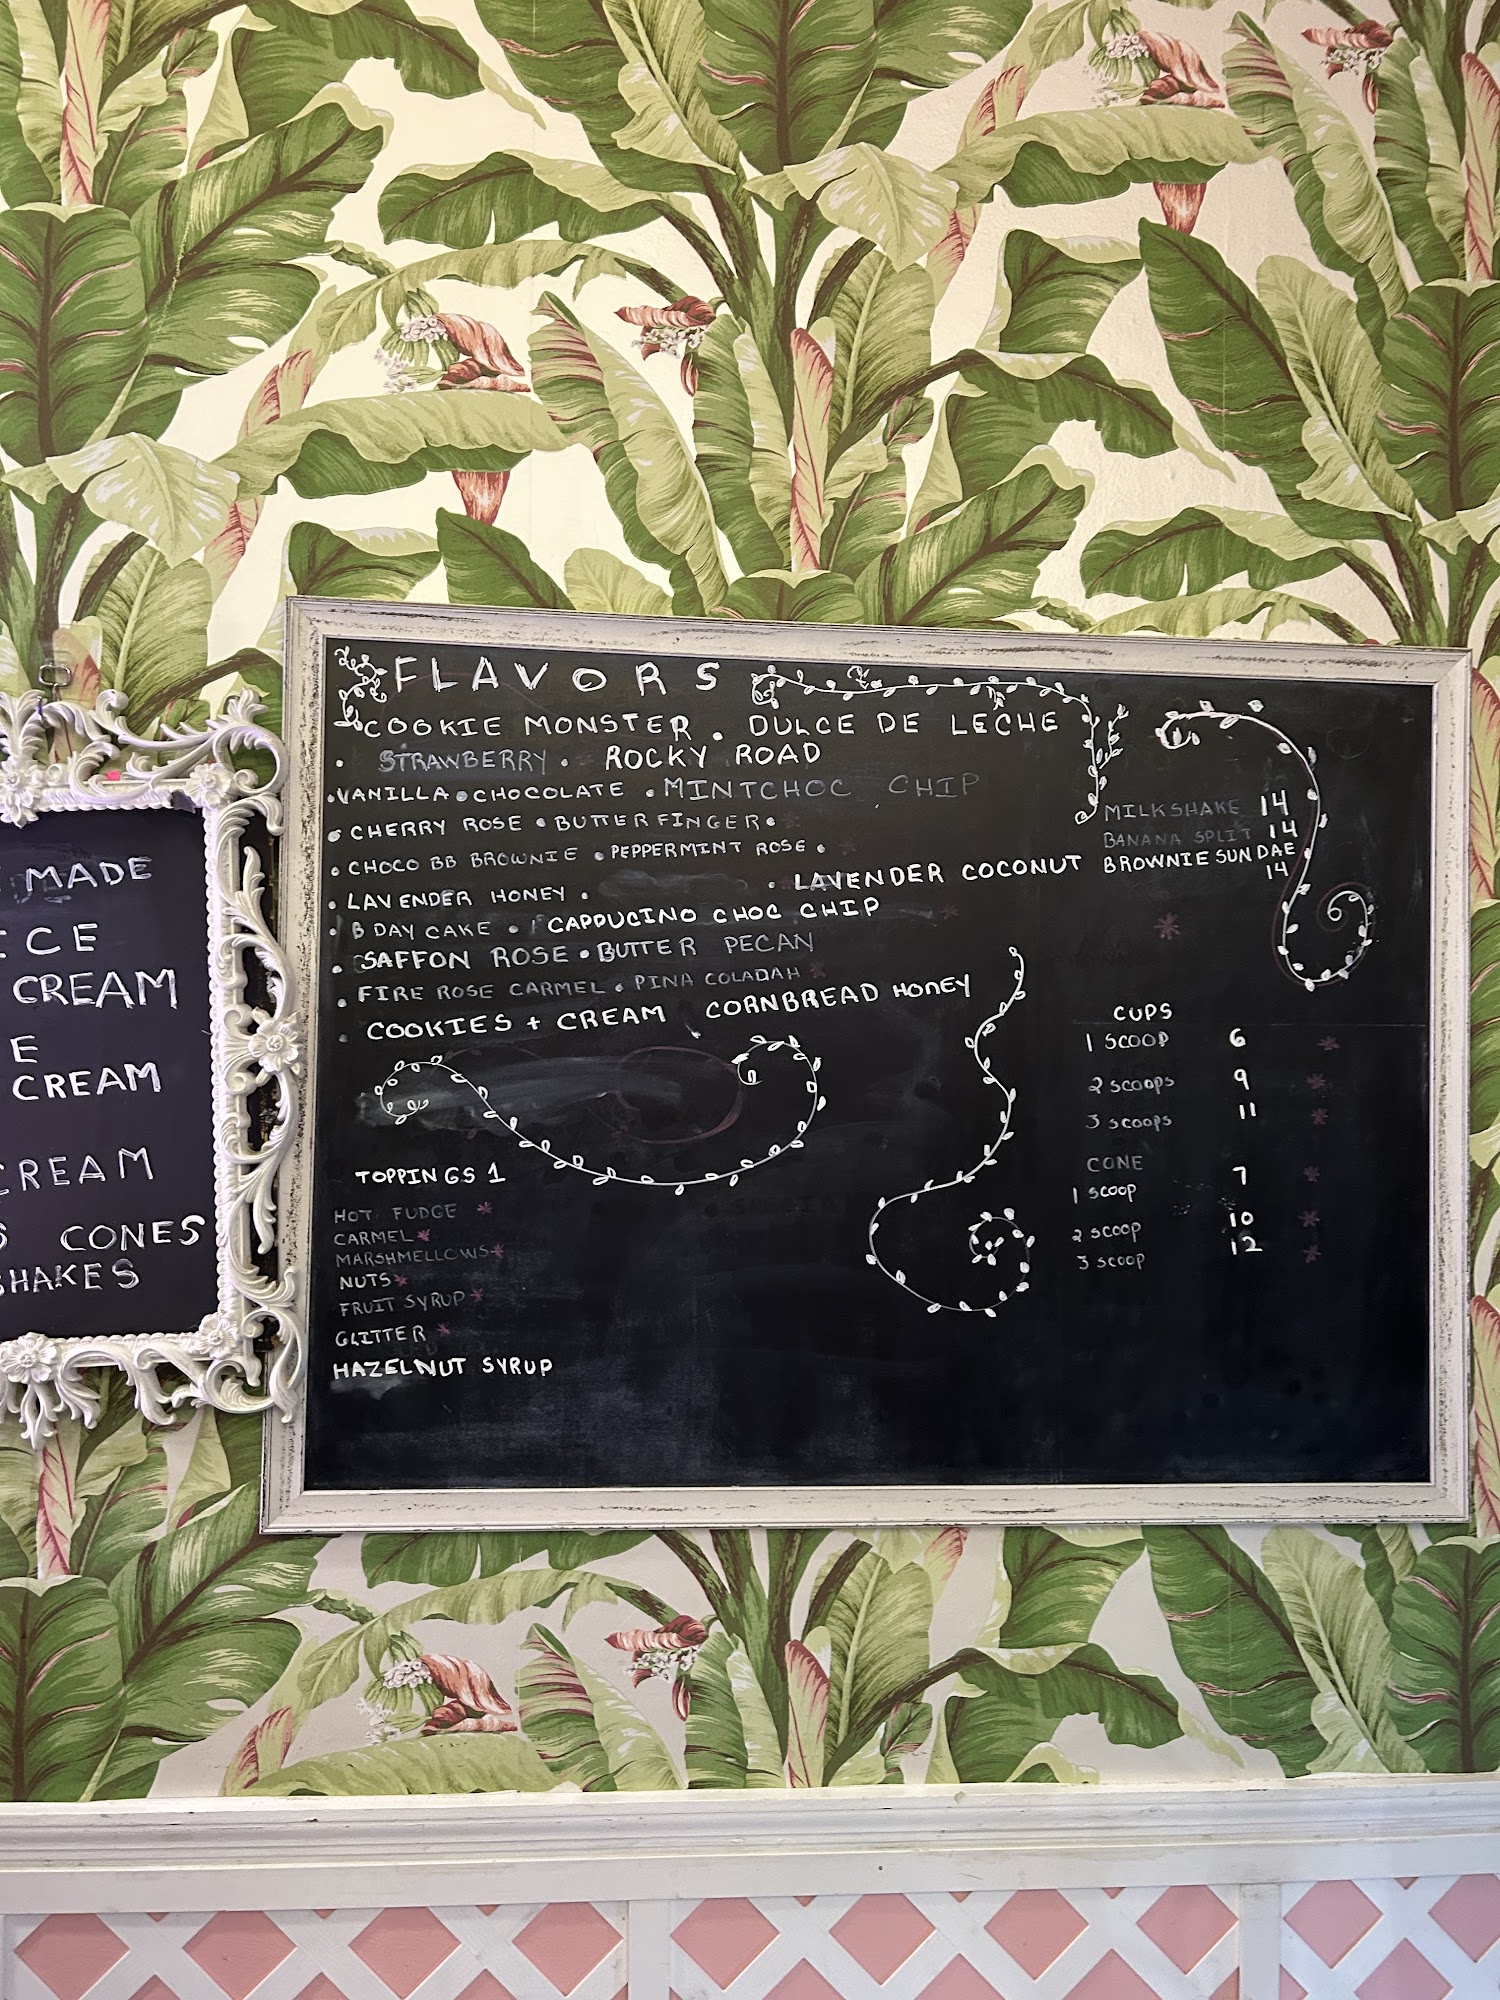 MADE
ICE
CREAM
E
CREAM
CREAM
S CONES
SHAKES
FLAVORS
COOKIE MONSTER . DULCE DE LECHE
• STRAWBERRY • ROCKY ROAD
• VANILLA • CHOCOLATE • MINT CHOC CHIP
• CHERRY ROSE • BUTTERFINGER •
• CHOCO BB BROWNIE • PEPPERMINT ROSE •
• LAVENDER HONEY • • LAVENDER COCONUT
• B DAY CAKE • CAPPUCINO CHOC CHIP
• SAFFON ROSE • BUTTER PECAN
• FIRE ROSE CARMEL • PINA COLADAH
• COOKIES + CREAM CORNBREAD HONEY
TOPPINGS 1
HOT FUDGE *
CARMEL *
MARSHMELLOWS *
NUTS *
FRUIT SYRUP *
GLITTER *
HAZELNUT SYRUP
MILKSHAKE 14
BANANA SPLIT 14
BROWNIE SUNDAE
14
CUPS
1 SCOOP 6
2 SCOOPS 9
3 SCOOPS 11
CONE
1 SCOOP 7
2 SCOOP 10
3 SCOOP 12